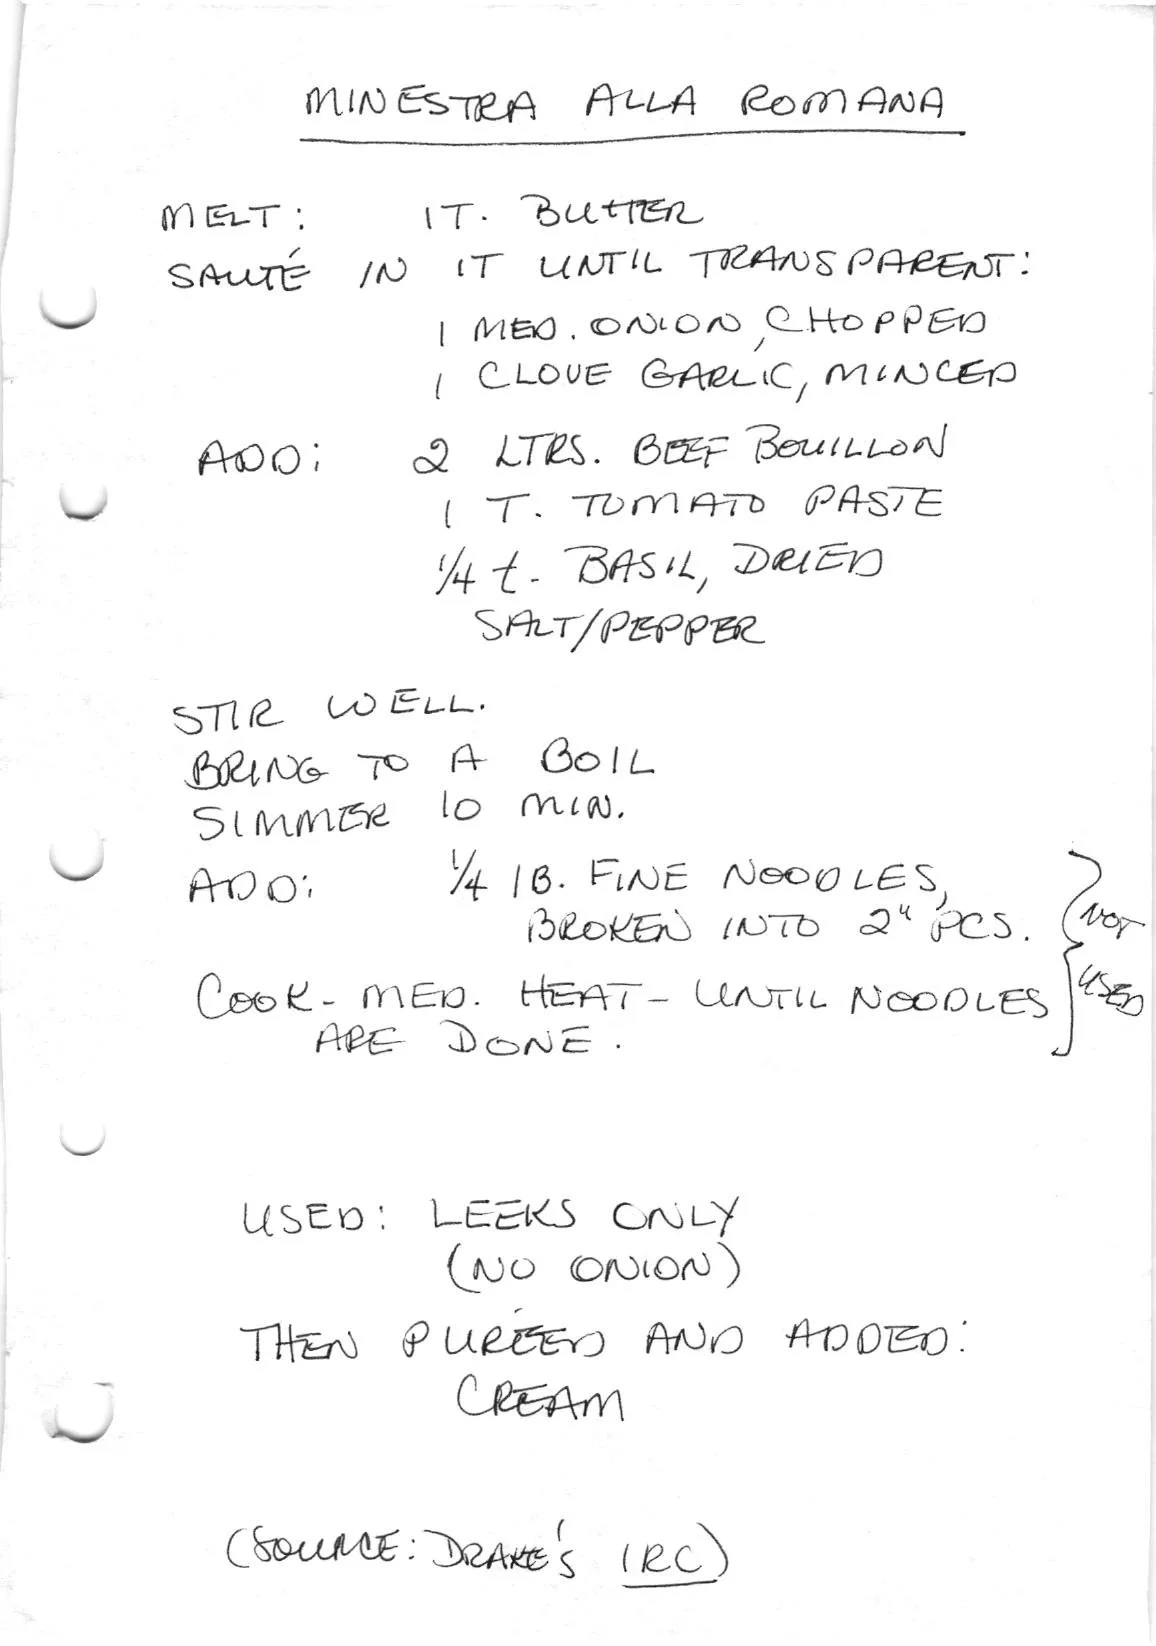 MINESTRA ALLA ROMANA
MELT: 1T. BUTTER
SAUTÉ IN IT UNTIL TRANSPARENT:
1 MED. ONION, CHOPPED
1 CLOVE GARLIC, MINCED
ADD: 2 LTRS. BEEF BOUILLON
1 T. TOMATO PASTE
1/4 t. BASIL, DRIED
SALT/PEPPER
STIR WELL.
BRING TO A BOIL
SIMMER 10 MIN.
ADD: 1/4 lB. FINE NOODLES,
BROKEN INTO 2" PCS.
COOK - MED. HEAT - UNTIL NOODLES
ARE DONE.
NOT
USED
USED: LEEKS ONLY
(NO ONION)
THEN PURÉED AND ADDED:
CREAM
(SOURCE: DRAKE'S IRC)